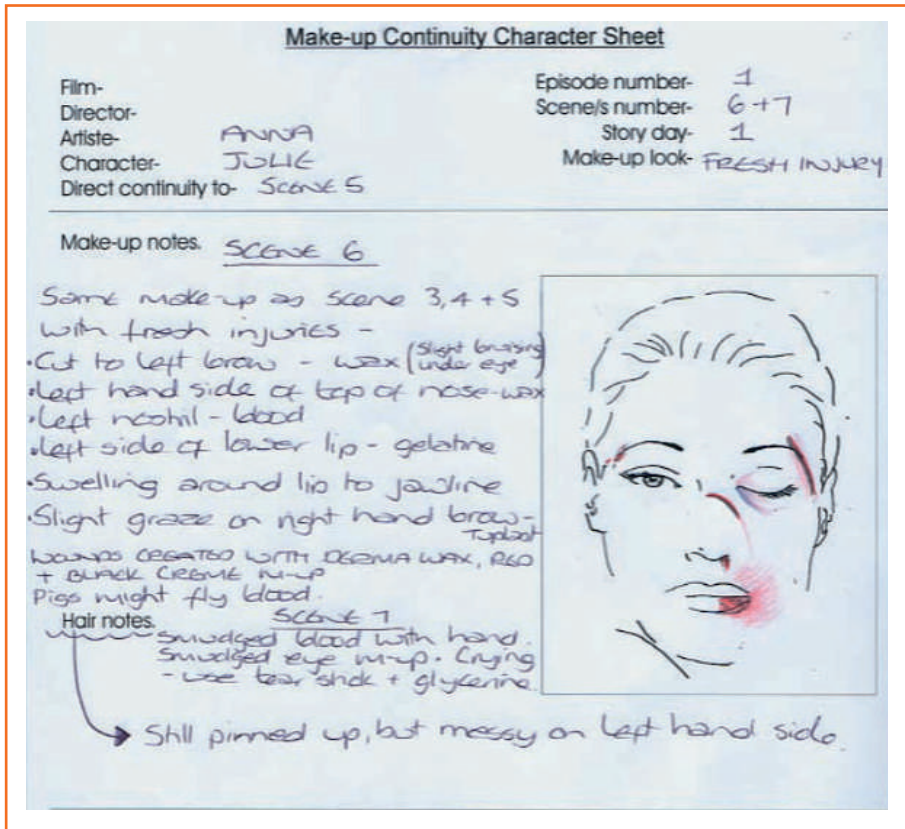 Make-up Continuity Character Sheet
Film-
Director-
Artiste- ANNA
Character- JULIE
Direct continuity to- SCENE 5
Episode number- 1
Scene/s number- 6+7
Story day- 1
Make-up look- FRESH INJURY
Make-up notes. SCENE 6
Same make-up as scene 3,4 + 5
with fresh injuries -
• Cut to left brow - wax (Slight bruising under eye)
• Left hand side of top of nose-wax
• Left nostril - blood
• Left side of lower lip - gelatine
• Swelling around lip to jawline
• Slight graze on right hand brow-
Tuplast
WOUNDS CREATED WITH DERMA WAX, RED
+ BLACK CREME M-UP
Pigs might fly blood.
Hair notes. SCENE 7
Smudged blood with hand.
Smudged eye m-up. Crying
- use tear stick + glycerine.
Still pinned up, but messy on left hand side.